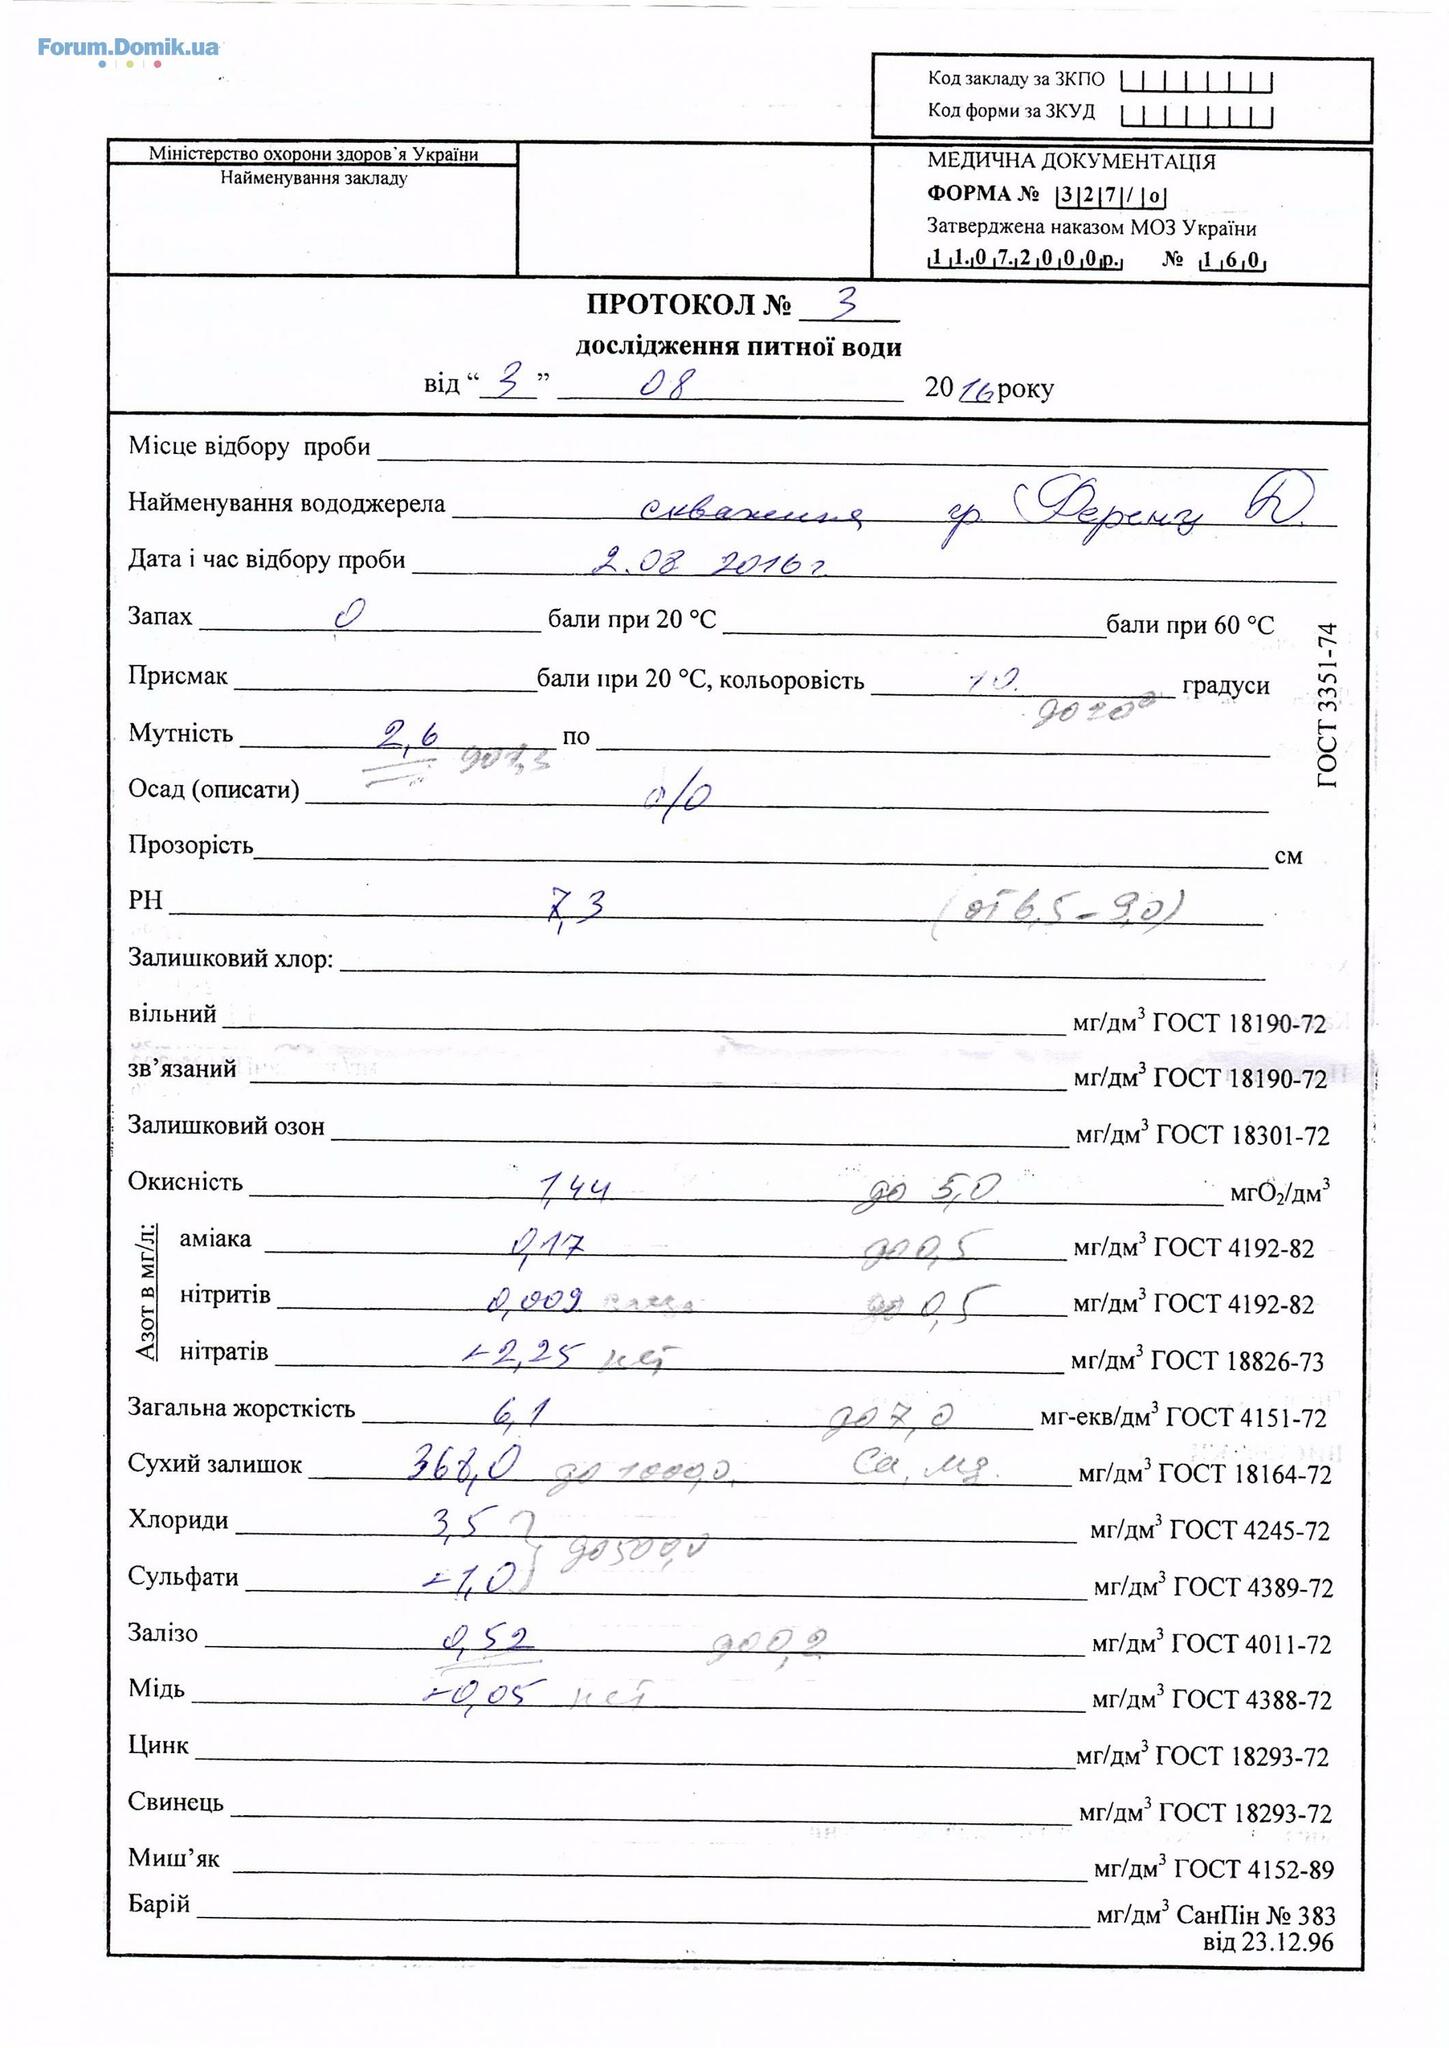 Forum.Domik.ua
Код закладу за ЗКПО
Код форми за ЗКУД
Міністерство охорони здоров`я України
Найменування закладу
МЕДИЧНА ДОКУМЕНТАЦІЯ
ФОРМА № 327/о
Затверджена наказом МОЗ України
11.07.2000р. № 160
ПРОТОКОЛ № 3
дослідження питної води
від “3” 08 2016 року
Місце відбору проби
Найменування вододжерела скважина гр. Ференц В.
Дата і час відбору проби 2.08 2016г.
Запах 0 бали при 20 °С бали при 60 °С
Присмак бали при 20 °С, кольоровість 10. градуси
до 20°
Мутність 2,6 по
ГОСТ 3351-74
Осад (описати) б/о
Прозорість см
РН 7,3 (от 6,5 - 9,0)
Залишковий хлор:
вільний мг/дм³ ГОСТ 18190-72
зв’язаний мг/дм³ ГОСТ 18190-72
Залишковий озон мг/дм³ ГОСТ 18301-72
Окисність 1,44 до 5,0 мгО₂/дм³
Азот в мг/л:
аміака 0,17 до 0,5 мг/дм³ ГОСТ 4192-82
нітритів 0,009 до 0,5 мг/дм³ ГОСТ 4192-82
нітратів <2,25 нет мг/дм³ ГОСТ 18826-73
Загальна жорсткість 6,1 до 7,0 мг-екв/дм³ ГОСТ 4151-72
Сухий залишок 368,0 до 1000,0. Ca, Mg. мг/дм³ ГОСТ 18164-72
Хлориди 3,5 мг/дм³ ГОСТ 4245-72
до 500,0
Сульфати <1,0 мг/дм³ ГОСТ 4389-72
Залізо 0,52 до 0,2 мг/дм³ ГОСТ 4011-72
Мідь <0,05 нет мг/дм³ ГОСТ 4388-72
Цинк мг/дм³ ГОСТ 18293-72
Свинець мг/дм³ ГОСТ 18293-72
Миш’як мг/дм³ ГОСТ 4152-89
Барій мг/дм³ СанПін № 383
від 23.12.96